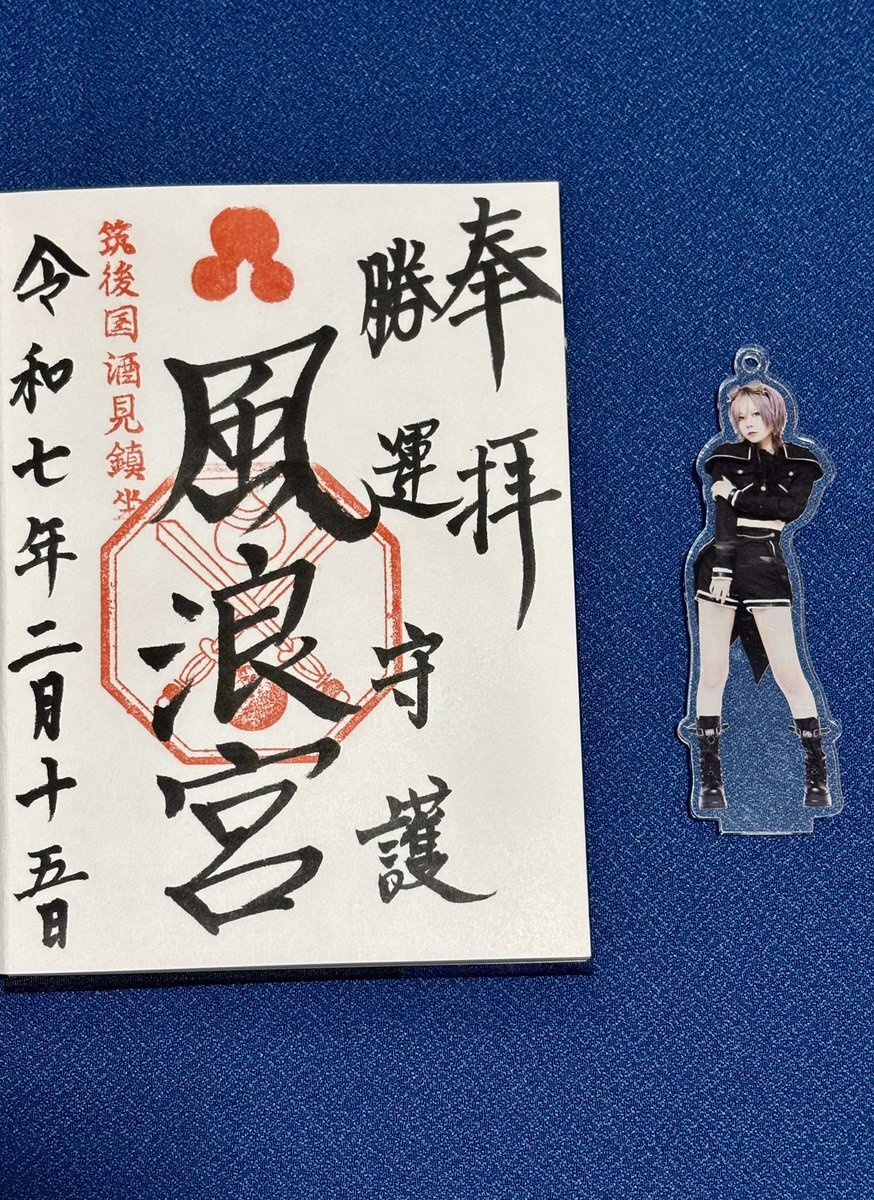 奉拝
勝運守護
風浪宮
筑後国酒見鎮坐
令和七年二月十五日